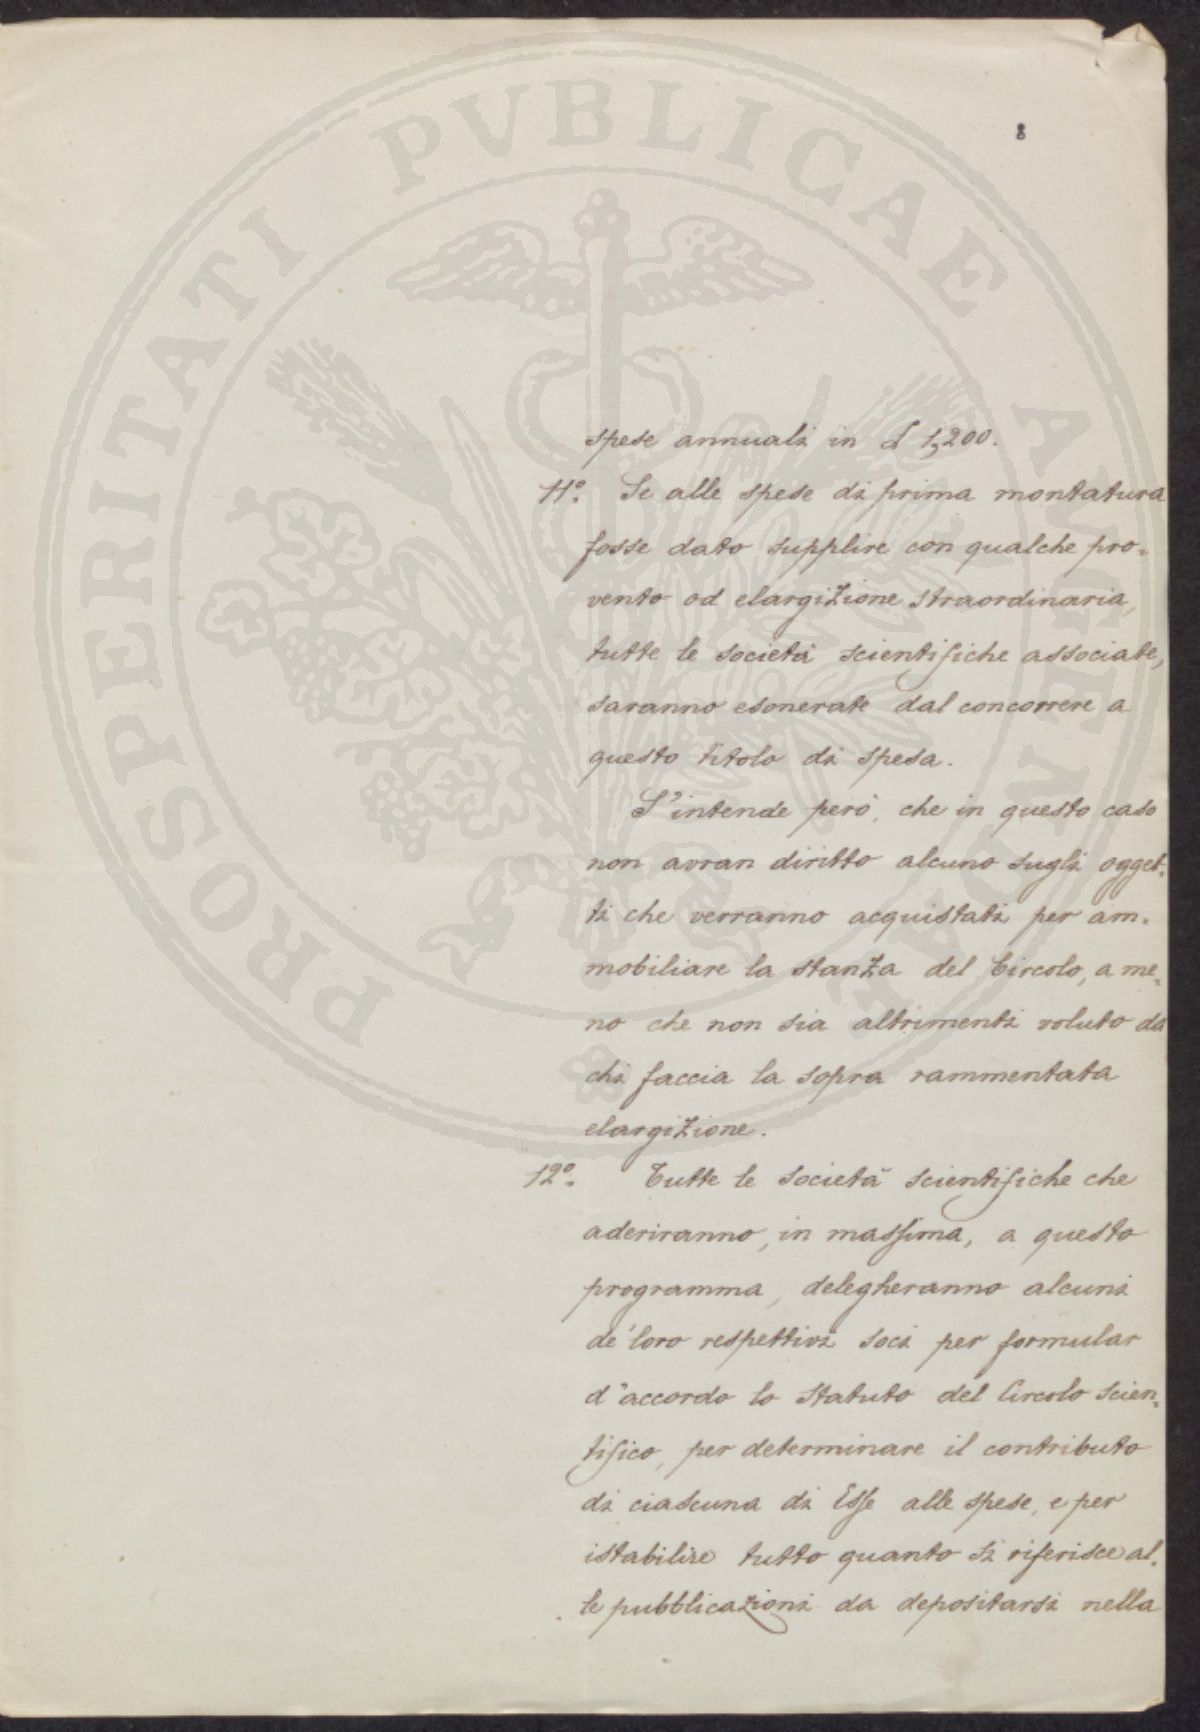 8
spese annuali in £ 1,200.
11º. Se alle spese di prima montatura
fosse dato supplire con qualche pro=
vento od elargizione straordinaria,
tutte le società scientifiche associate,
saranno esonerate dal concorrere a
questo titolo di spesa.
S'intende però, che in questo caso
non avran diritto alcuno sugli ogget=
ti che verranno acquistati per am=
mobiliare la stanza del Circolo, a me=
no che non sia altrimenti voluto da
chi faccia la sopra rammentata
elargizione.
12º. Tutte le società scientifiche che
aderiranno, in massima, a questo
programma, delegheranno alcuni
de' loro respettivi soci per formular
d'accordo lo Statuto del Circolo Scien=
tifico, per determinare il contributo
di ciascuna di Esse alle spese, e per
istabilire tutto quanto si riferisce al=
le pubblicazioni da depositarsi nella
PROSPERITATI PVBLICAE AVGENDAE